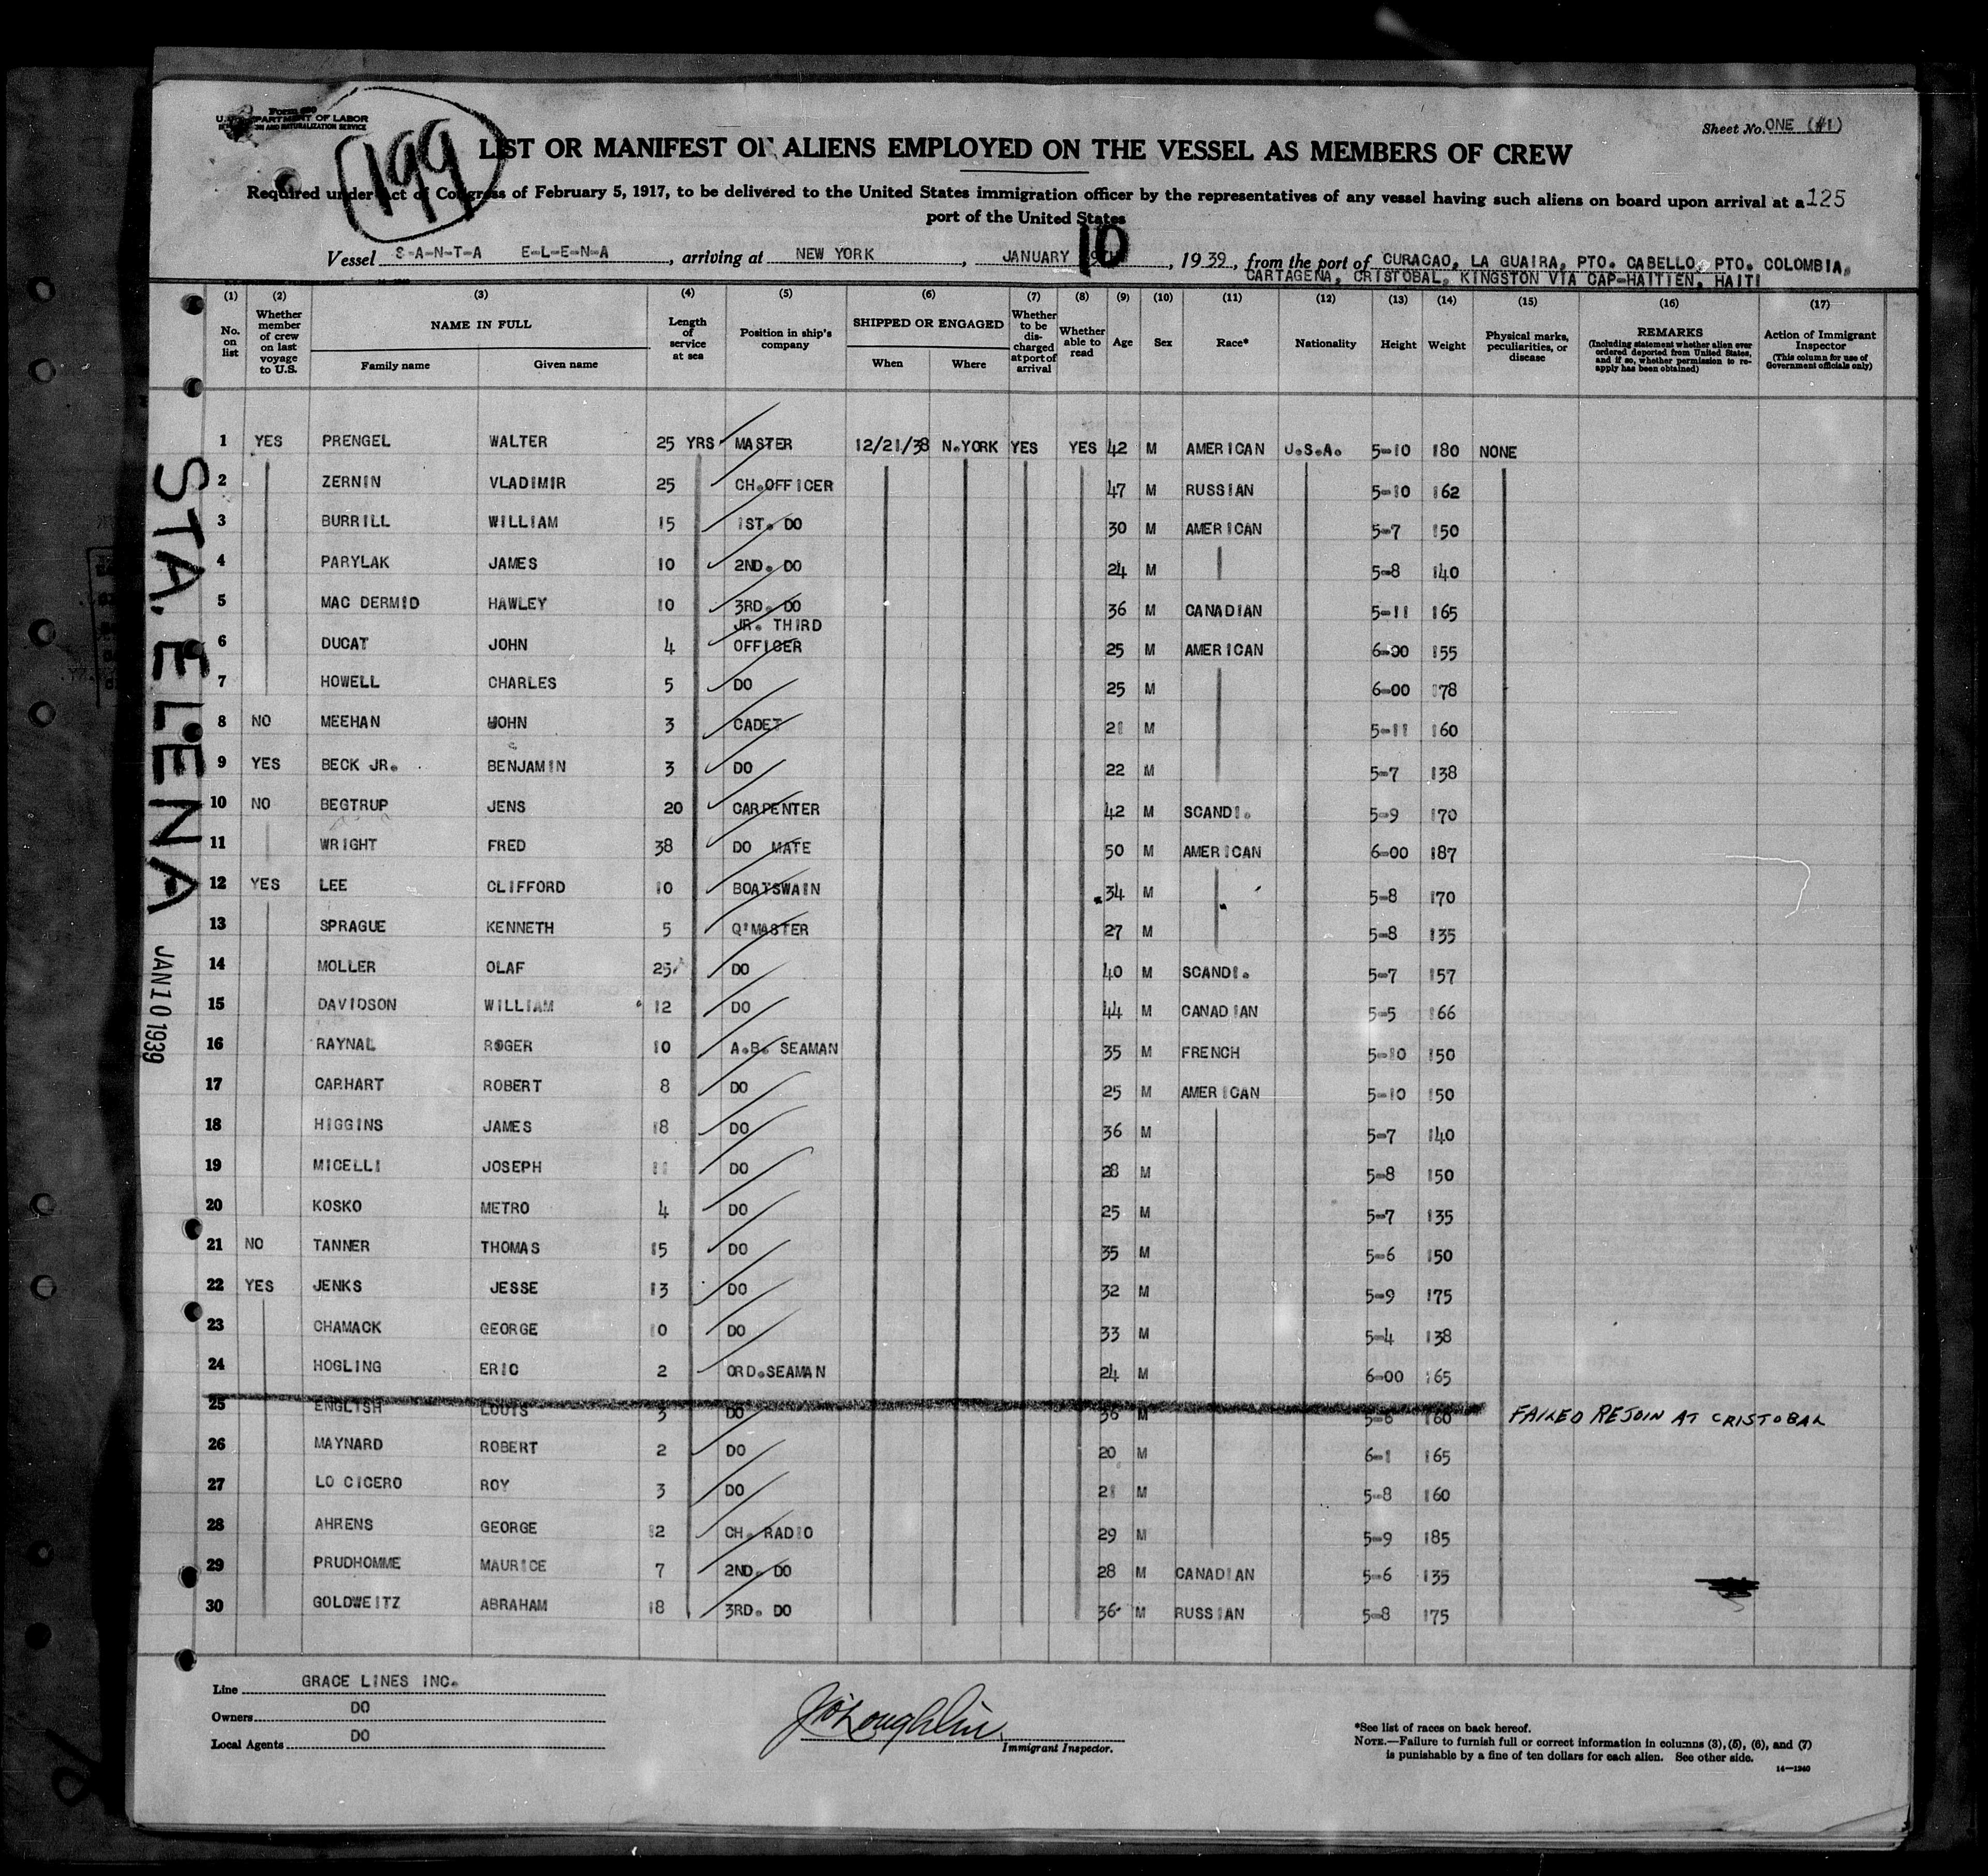 Form 680
U.S. DEPARTMENT OF LABOR
AND NATURALIZATION SERVICE
199
Sheet No. ONE (#1)
LIST OR MANIFEST OF ALIENS EMPLOYED ON THE VESSEL AS MEMBERS OF CREW
Required under Act of Congress of February 5, 1917, to be delivered to the United States immigration officer by the representatives of any vessel having such aliens on board upon arrival at a 125
port of the United States
Vessel S-A-N-T-A E-L-E-N-A, arriving at NEW YORK, JANUARY 10, 1939, from the port of CURACAO, LA GUAIRA, PTO. CABELLO, PTO. COLOMBIA,
CARTAGENA, CRISTOBAL, KINGSTON VIA CAP-HAITIEN, HAITI
(1) (2) (3) (4) (5) (6) (7) (8) (9) (10) (11) (12) (13) (14) (15) (16) (17)
No. on list
Whether member of crew on last voyage to U.S.
NAME IN FULL
Family name Given name
Length of service at sea
Position in ship's company
SHIPPED OR ENGAGED
When Where
Whether to be discharged at port of arrival
Whether able to read
Age
Sex
Race*
Nationality
Height
Weight
Physical marks, peculiarities, or disease
REMARKS
(Including statement whether alien ever ordered deported from United States, and if so, whether permission to re-apply has been obtained)
Action of Immigrant Inspector
(This column for use of Government officials only)
1 YES PRENGEL WALTER 25 YRS MASTER 12/21/38 N.YORK YES YES 42 M AMERICAN U.S.A. 5-10 180 NONE
2 ZERNIN VLADIMIR 25 CH.OFFICER 47 M RUSSIAN 5-10 162
3 BURRILL WILLIAM 15 1ST. DO 30 M AMERICAN 5-7 150
4 PARYLAK JAMES 10 2ND. DO 24 M 5-8 140
5 MAC DERMID HAWLEY 10 3RD. DO 36 M CANADIAN 5-11 165
6 DUCAT JOHN 4 JR. THIRD OFFICER 25 M AMERICAN 6-00 155
7 HOWELL CHARLES 5 DO 25 M 6-00 178
8 NO MEEHAN JOHN 3 CADET 21 M 5-11 160
9 YES BECK JR. BENJAMIN 3 DO 22 M 5-7 138
10 NO BEGTRUP JENS 20 CARPENTER 42 M SCANDI. 5-9 170
11 WRIGHT FRED 38 DO MATE 50 M AMERICAN 6-00 187
12 YES LEE CLIFFORD 10 BOATSWAIN 34 M 5-8 170
13 SPRAGUE KENNETH 5 Q'MASTER 27 M 5-8 135
14 MOLLER OLAF 25 DO 40 M SCANDI. 5-7 157
15 DAVIDSON WILLIAM 12 DO 44 M CANADIAN 5-5 166
16 RAYNAL ROGER 10 A.B. SEAMAN 35 M FRENCH 5-10 150
17 CARHART ROBERT 8 DO 25 M AMERICAN 5-10 150
18 HIGGINS JAMES 18 DO 36 M 5-7 140
19 MICELLI JOSEPH 11 DO 28 M 5-8 150
20 KOSKO METRO 4 DO 25 M 5-7 135
21 NO TANNER THOMAS 15 DO 35 M 5-6 150
22 YES JENKS JESSE 13 DO 32 M 5-9 175
23 CHAMACK GEORGE 10 DO 33 M 5-4 138
24 HOGLING ERIC 2 ORD.SEAMAN 24 M 6-00 165
25 ENGLISH LOUIS 3 DO 36 M 5-6 160 FAILED REJOIN AT CRISTOBAL
26 MAYNARD ROBERT 2 DO 20 M 6-1 165
27 LO CICERO ROY 3 DO 21 M 5-8 160
28 AHRENS GEORGE 12 CH. RADIO 29 M 5-9 185
29 PRUDHOMME MAURICE 7 2ND. DO 28 M CANADIAN 5-6 135
30 GOLDWEITZ ABRAHAM 18 3RD. DO 36 M RUSSIAN 5-8 175
STA. ELENA
JAN 10 1939
Line GRACE LINES INC.
Owners DO
Local Agents DO
J. O'Loughlin
Immigrant Inspector.
*See list of races on back hereof.
NOTE.—Failure to furnish full or correct information in columns (3), (5), (6), and (7)
is punishable by a fine of ten dollars for each alien. See other side.
14—1240